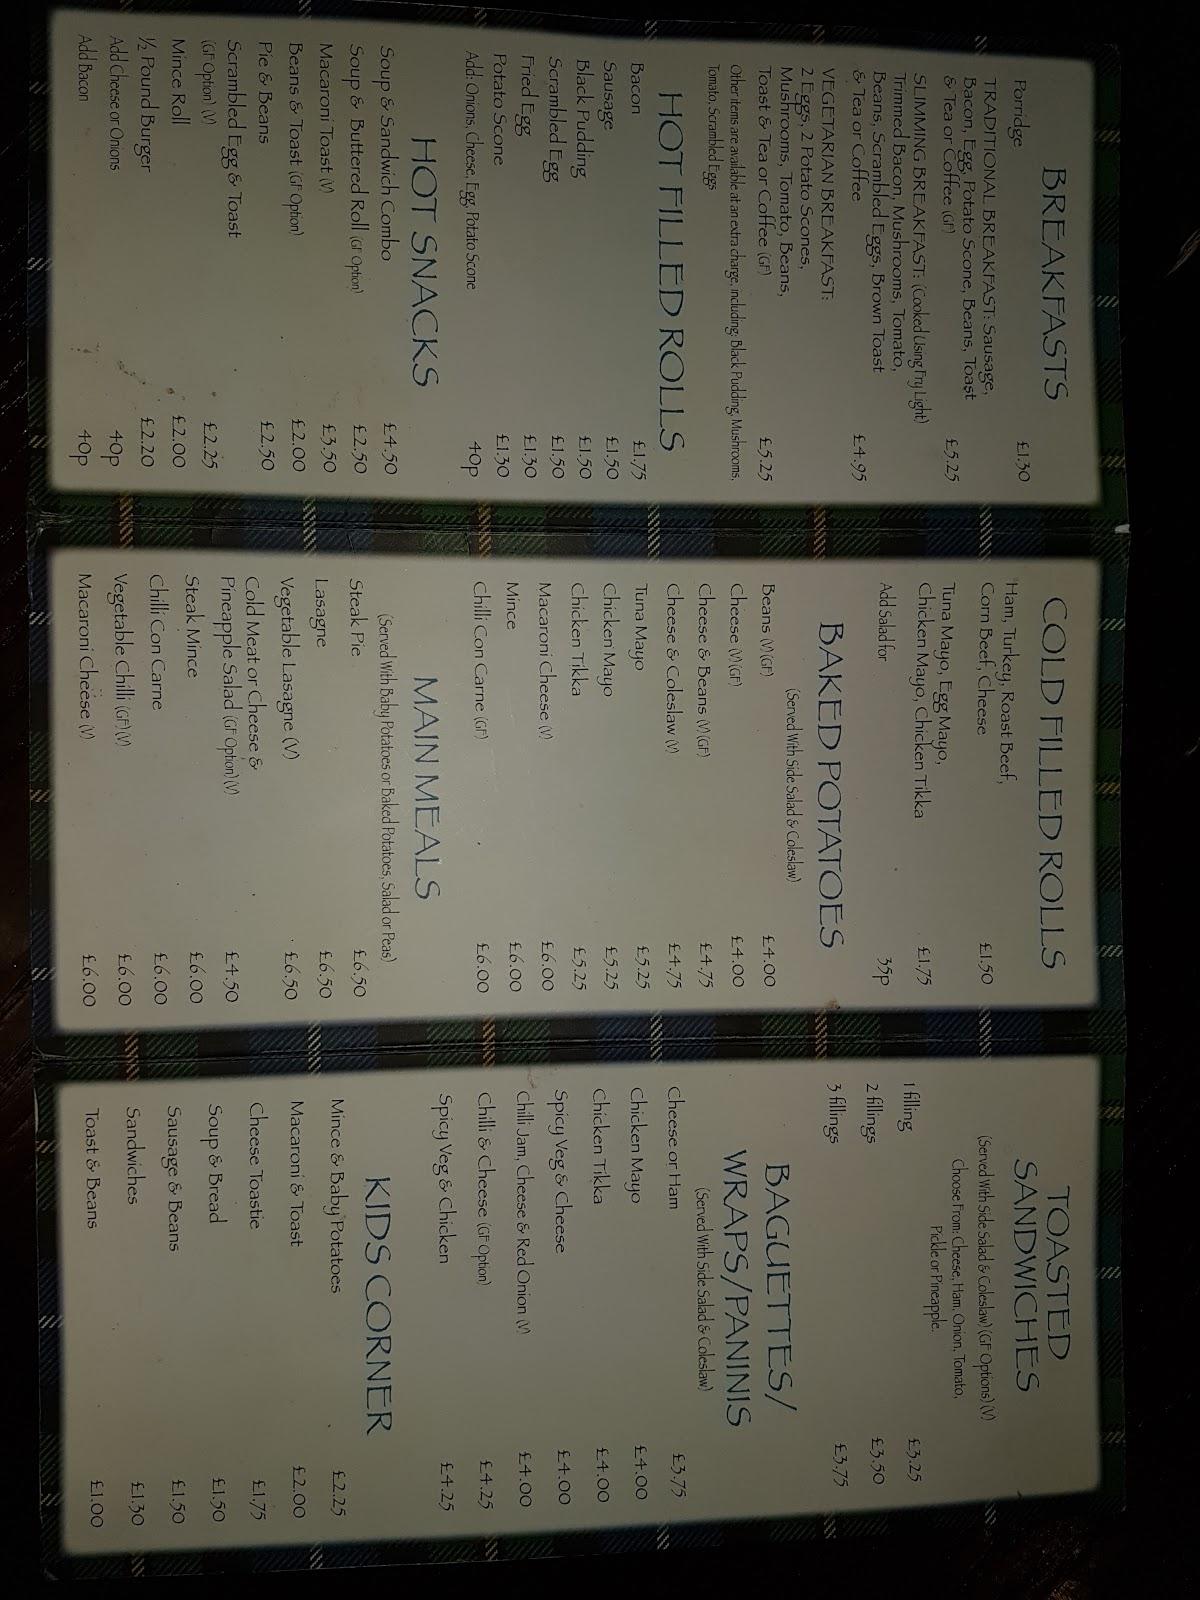 BREAKFASTS
Porridge £1.30
TRADITIONAL BREAKFAST: Sausage,
Bacon, Egg, Potato Scone, Beans, Toast
& Tea or Coffee (GF) £5.25
SLIMMING BREAKFAST: (Cooked Using Fry Light)
Trimmed Bacon, Mushrooms, Tomato,
Beans, Scrambled Eggs, Brown Toast
& Tea or Coffee £4.95
VEGETARIAN BREAKFAST:
2 Eggs, 2 Potato Scones,
Mushrooms, Tomato, Beans,
Toast & Tea or Coffee (GF) £5.25
Other items are available at an extra charge, including: Black Pudding, Mushrooms,
Tomato, Scrambled Eggs
HOT FILLED ROLLS
Bacon £1.75
Sausage £1.50
Black Pudding £1.50
Scrambled Egg £1.50
Fried Egg £1.30
Potato Scone £1.30
Add: Onions, Cheese, Egg, Potato Scone 40p
HOT SNACKS
Soup & Sandwich Combo £4.50
Soup & Buttered Roll (GF Option) £2.50
Macaroni Toast (V) £3.50
Beans & Toast (GF Option) £2.00
Pie & Beans £2.50
Scrambled Egg & Toast
(GF Option) (V) £2.25
Mince Roll £2.00
½ Pound Burger £2.20
Add Cheese or Onions 40p
Add Bacon 40p
COLD FILLED ROLLS
Ham, Turkey, Roast Beef,
Corn Beef, Cheese £1.50
Tuna Mayo, Egg Mayo,
Chicken Mayo, Chicken Tikka £1.75
Add Salad for 35p
BAKED POTATOES
(Served With Side Salad & Coleslaw)
Beans (V) (GF) £4.00
Cheese (V) (GF) £4.00
Cheese & Beans (V) (GF) £4.75
Cheese & Coleslaw (V) £4.75
Tuna Mayo £5.25
Chicken Mayo £5.25
Chicken Tikka £5.25
Macaroni Cheese (V) £6.00
Mince £6.00
Chilli Con Carne (GF) £6.00
MAIN MEALS
(Served With Baby Potatoes or Baked Potatoes, Salad or Peas)
Steak Pie £6.50
Lasagne £6.50
Vegetable Lasagne (V) £6.50
Cold Meat or Cheese &
Pineapple Salad (GF Option) (V) £4.50
Steak Mince £6.00
Chilli Con Carne £6.00
Vegetable Chilli (GF) (V) £6.00
Macaroni Cheese (V) £6.00
TOASTED
SANDWICHES
(Served With Side Salad & Coleslaw) (GF Options) (V)
Choose From: Cheese, Ham, Onion, Tomato,
Pickle or Pineapple.
1 filling £3.25
2 fillings £3.50
3 fillings £3.75
BAGUETTES/
WRAPS/PANINIS
(Served With Side Salad & Coleslaw)
Cheese or Ham £3.75
Chicken Mayo £4.00
Chicken Tikka £4.00
Spicy Veg & Cheese £4.00
Chilli Jam, Cheese & Red Onion (V) £4.00
Chilli & Cheese (GF Option) £4.25
Spicy Veg & Chicken £4.25
KIDS CORNER
Mince & Baby Potatoes £2.25
Macaroni & Toast £2.00
Cheese Toastie £1.75
Soup & Bread £1.50
Sausage & Beans £1.50
Sandwiches £1.30
Toast & Beans £1.00